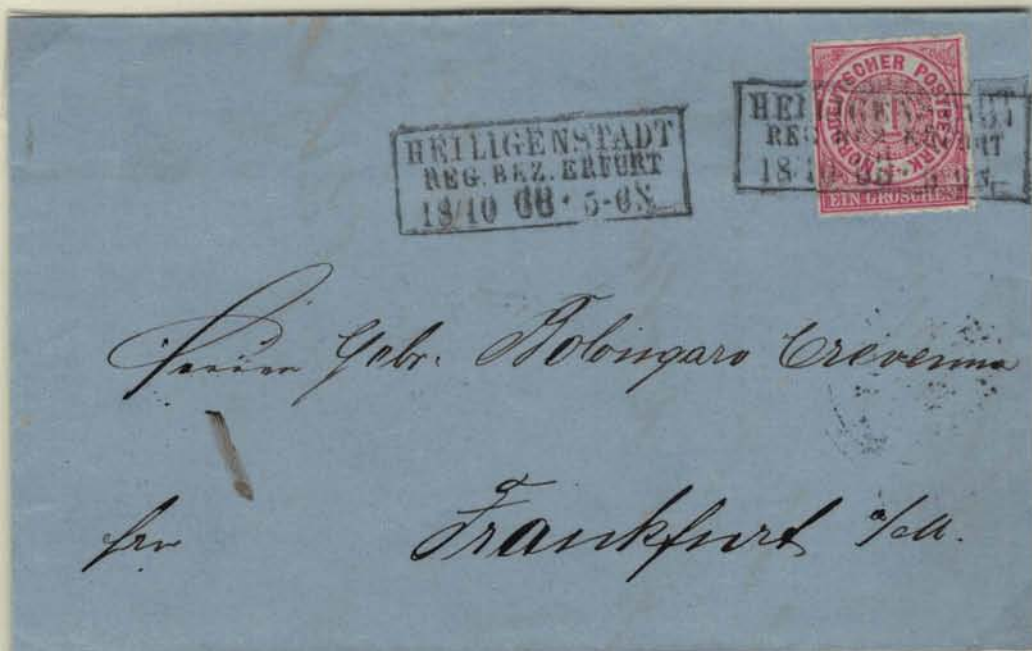 HEILIGENSTADT
REG. BEZ. ERFURT
18/10 68 · 5-6N.
NORDDEUTSCHER POSTBEZIRK
1
EIN GROSCHEN
HEILIGENSTADT
REG. BEZ. ERFURT
18/10 68 · 5-6N.
Herren Gebr. Bolongaro Crevenna
frco Frankfurt a/M.